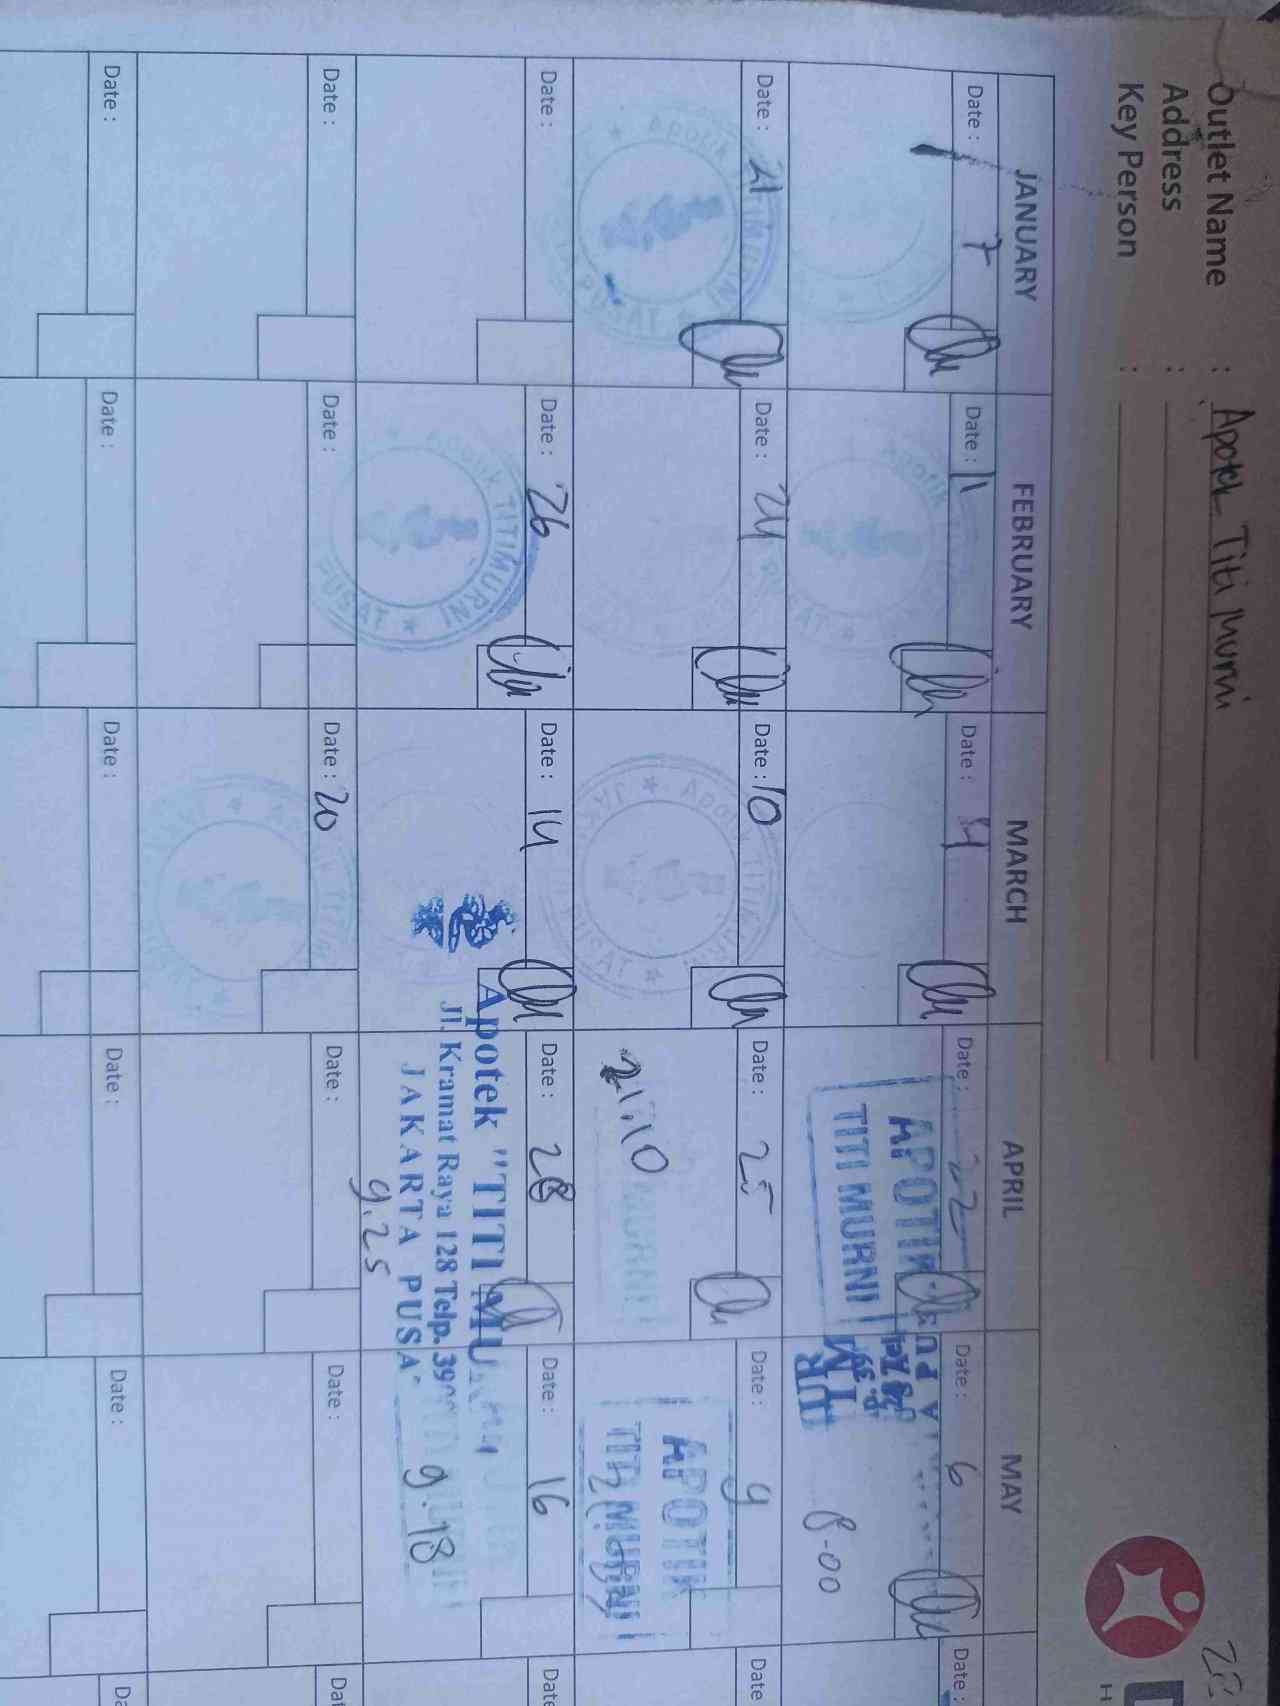 Outlet Name : Apotek Titi Murni
Address :
Key Person :
JANUARY FEBRUARY MARCH APRIL MAY
Date : 7
Date : 11
Date : 4
Date : 22
Date : 6
Date :
APOTIK
TITI MURNI
8-00
Date : 21
Date : 24
Date : 10
Date : 25
Date : 9
Date
Apotik TITIMURNI
21.10
MURNI
APOTIK
TITI MURNI
Date :
Date : 26
Date : 14
Date : 28
Date : 16
Date
Apotik TITIMURNI
PUSAT
Apotek "TITI MU
Jl. Kramat Raya 128 Telp. 39
JAKARTA PUSA
9.25
9.18
Date :
Date :
Date : 20
Date :
Date :
Dat
Date :
Date :
Date :
Date :
Date :
Da